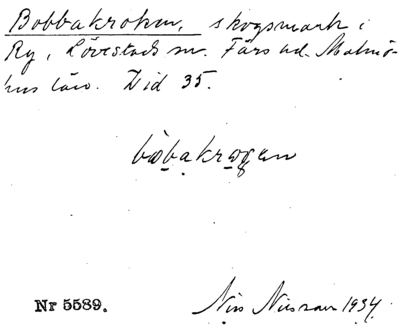 Bobbakroken, skogsmark i
Ry, Lövestads sn. Färs hd. Malmö-
hus län. Nid 35.
bo̱ba kro̱gen
Nr 5589.
Nils Nilsson 1934.